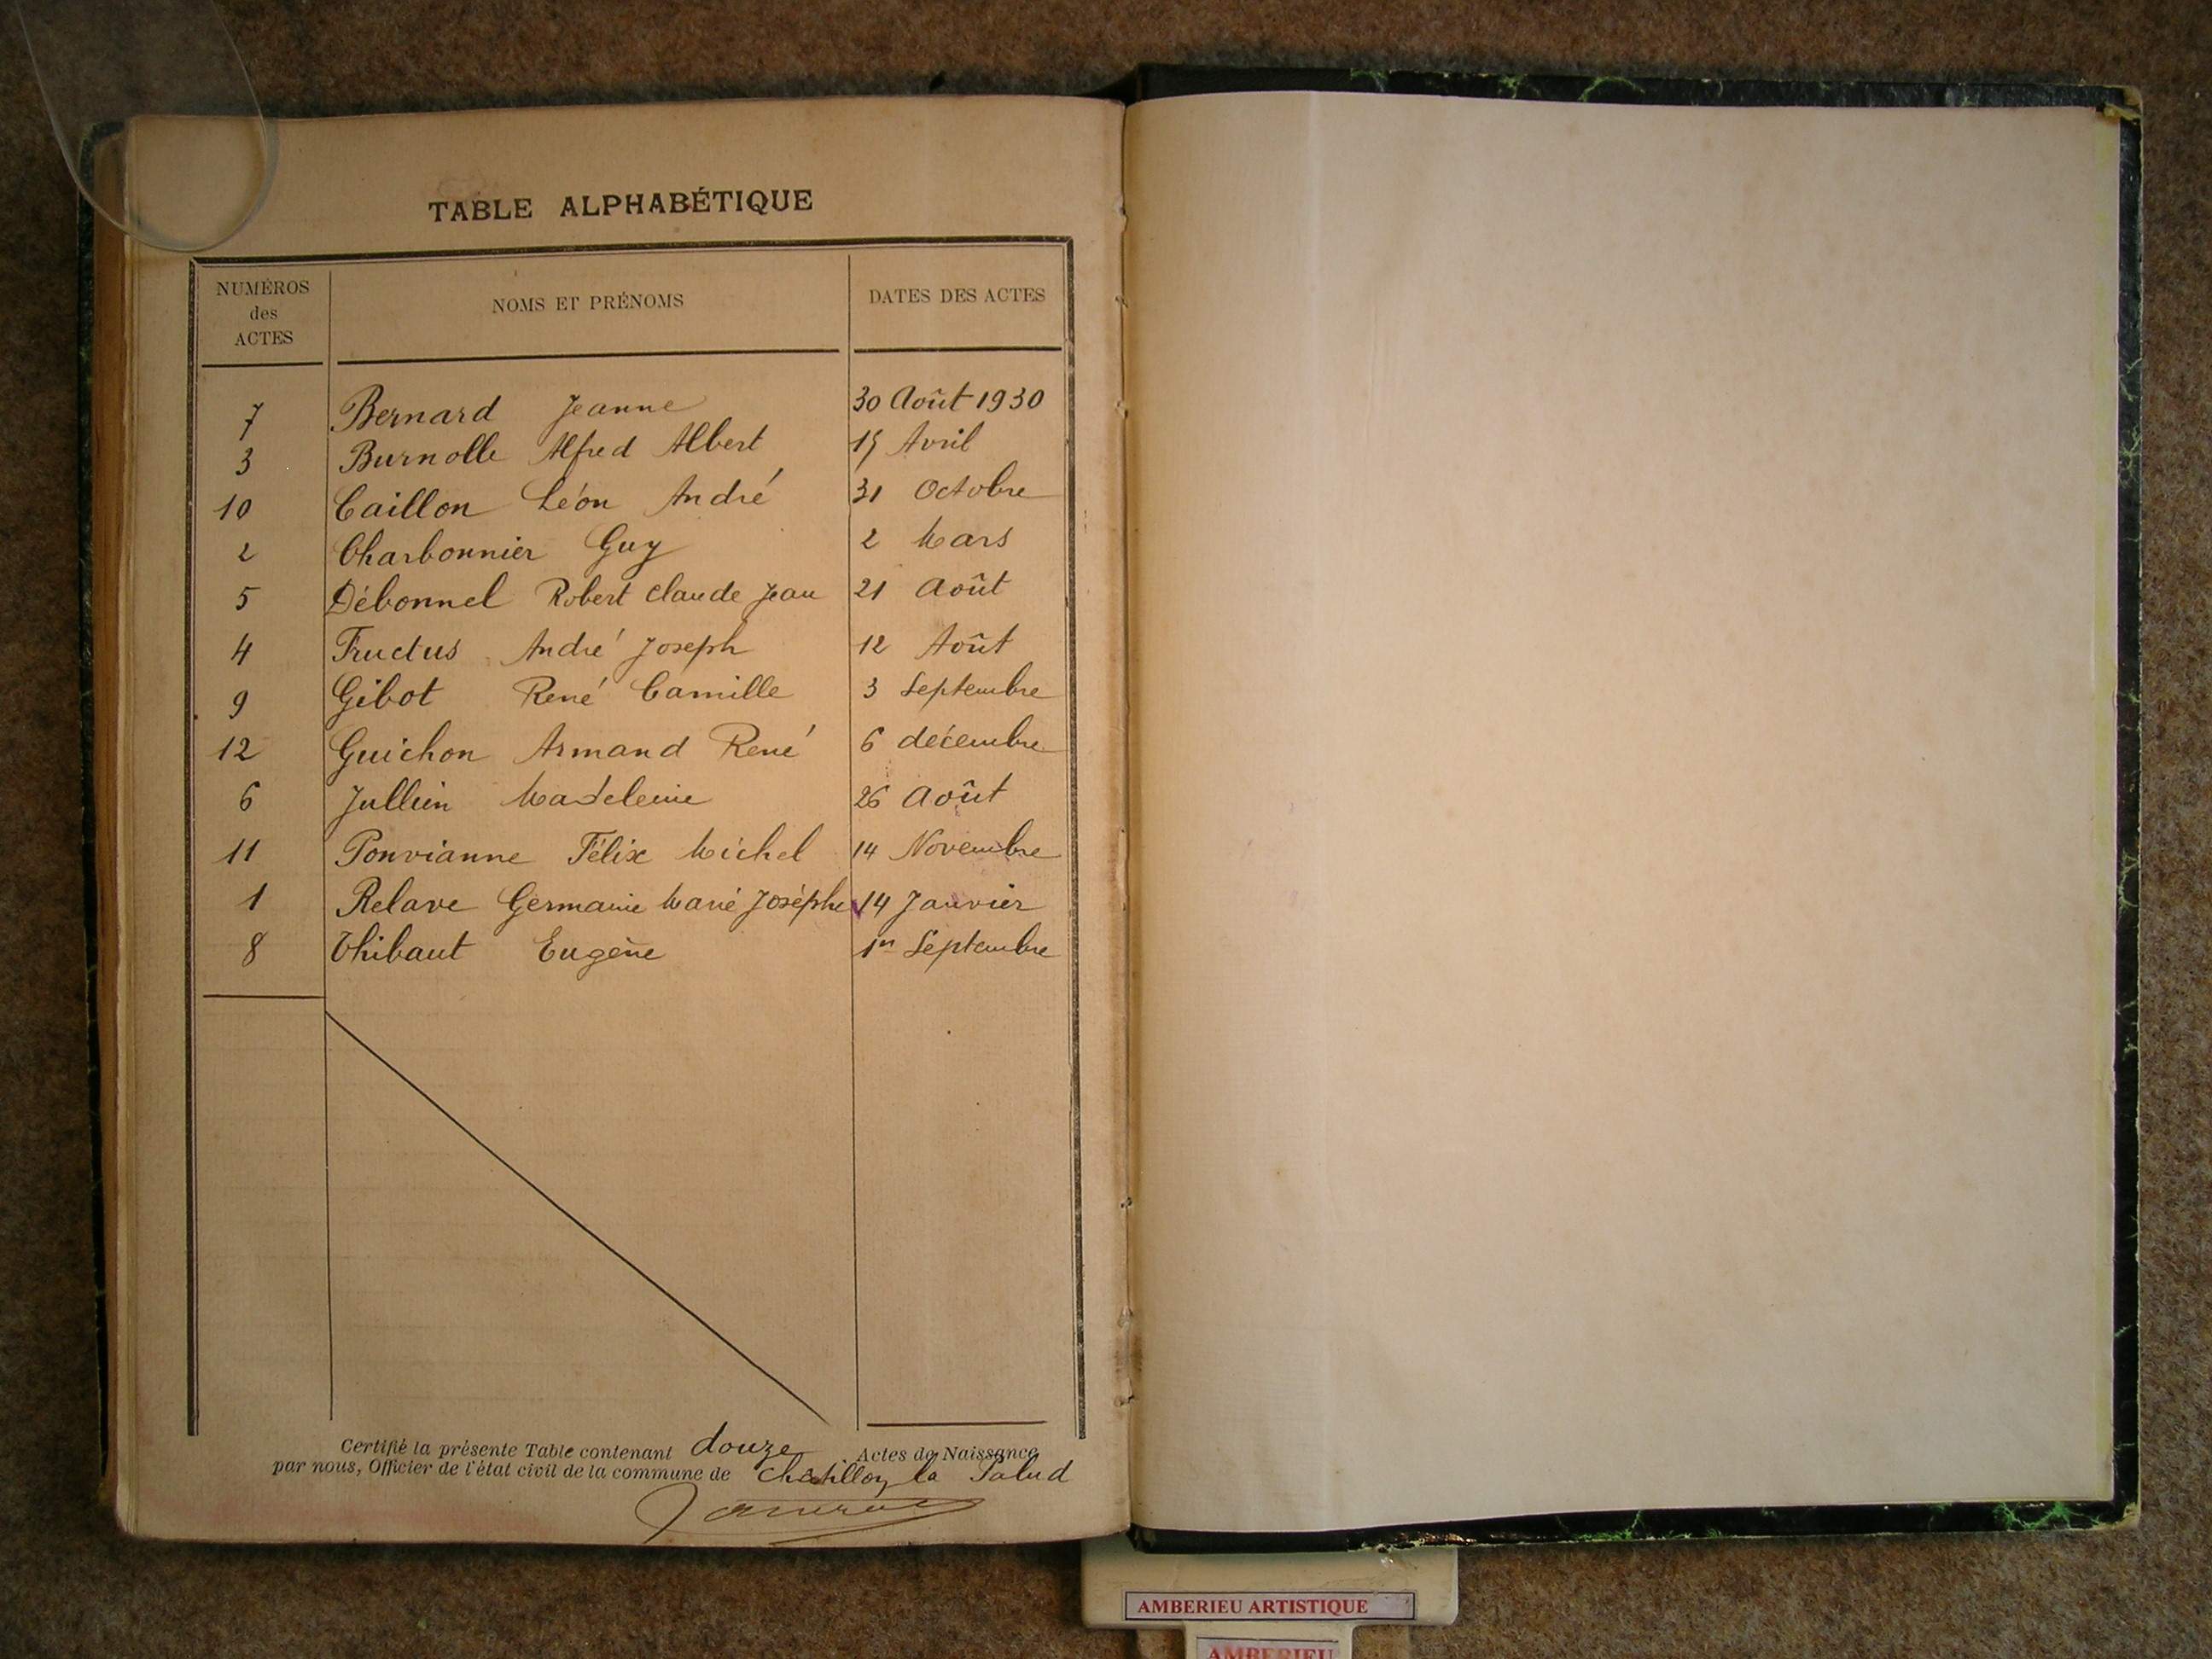 TABLE ALPHABÉTIQUE
NUMÉROS des ACTES NOMS ET PRÉNOMS DATES DES ACTES
7 Bernard Jeanne 30 Août 1930
3 Burnolle Alfred Albert 15 Avril
10 Caillon Léon André 31 Octobre
2 Charbonnier Guy 2 Mars
5 Débonnel Robert Claude Jean 21 Août
4 Fructus André Joseph 12 Août
9 Gibot René Camille 3 Septembre
12 Guichon Armand René 6 décembre
6 Jullien Madeleine 26 Août
11 Ponvianne Félix Michel 14 Novembre
1 Relave Germaine Marie Josèphe 14 Janvier
8 Thibaut Eugène 1er Septembre
Certifié la présente Table contenant douze Actes de Naissance
par nous, Officier de l'état civil de la commune de Châtillon la Palud
AMBERIEU ARTISTIQUE
AMBERIEU